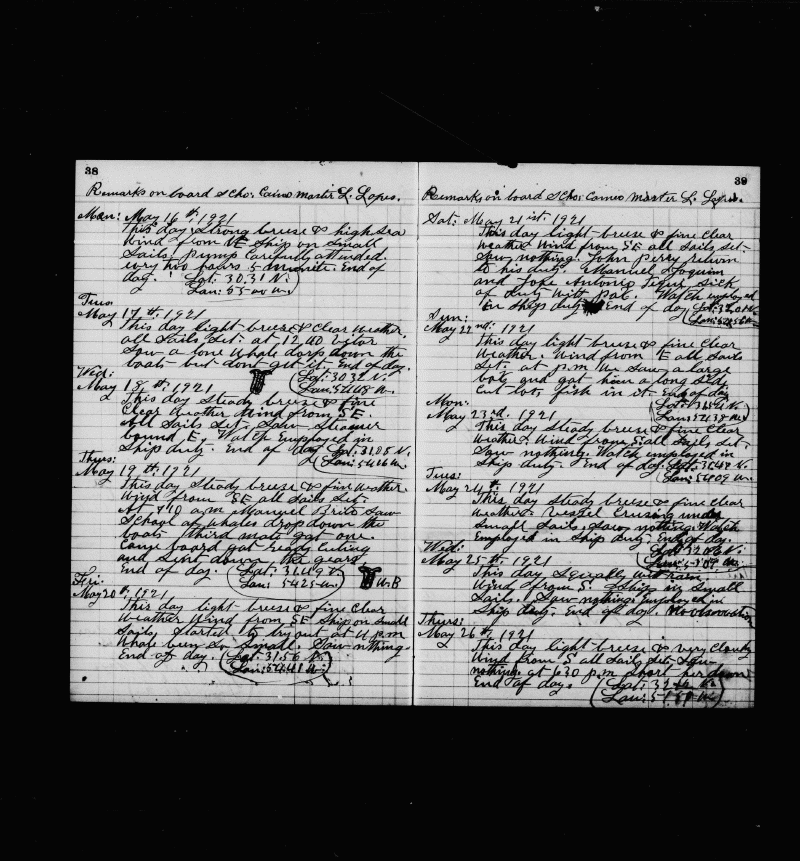 38
Remarks on board Scho: Cameo master L. Lopes.
Mon: May 16th, 1921
This day strong breeze & high sea
Wind from NE Ship on Small
Sails, pump carefully attended
every two hours 5 minute. End of
day. Lat: 30.31 N.
Lon: 55-00 W.
Tues:
May 17th, 1921
This day light breeze & clear weather.
all sails set. at 12.40
Saw a lone whale drop down the
boats but dont get it. End of day.
Wed: Lat: 30.32 N.
May 18th, 1921
This day Steady breeze & fine
Clear weather Wind from SE.
All sails set. Saw Steamer
bound E, Watch employed in
Ship duty. End of day Lat: 31.05 N.
Thurs: Lon: W.
May 19th, 1921
This day Steady breeze & fine weather
Wind from SE all sails set.
At a.m Manuel Brito Saw
School of whales drop down the
boats third mate got one.
Came board got ready cuting
and Sent down the gears.
End of day. Lat: 31.49 N.
Lon: 54.25 W. W.B
Fri:
May 20th, 1921
This day light breeze & fine Clear
Weather Wind from SE Ship on Small
Sails, Started to try out at 4 p.m
Whale very Small. Saw nothing.
End of day. Lat: 31.56 N.
Lon: 54.41 W.
39
Remarks on board Scho: Cameo master L. Lopes.
Sat: May 21st, 1921
This day light breeze & fine Clear
Weather Wind from SE all sails set.
Saw nothing. John Perry return
to his duty. Manuel Joaquim
and Joke Antonio Sick
of duty with Watch employed
in Ship duty. End of day
Sun:
May 22nd, 1921
This day light breeze & fine Clear
Weather. Wind from E all sails
Set. at p.m We Saw a large
and got a long Side
Cut lots fish in it. End of day
Mon:
May 23rd, 1921
This day steady breeze & fine Clear
Weather. Wind from S. all sails set.
Saw nothing. Watch employed in
Ship duty. End of day.
Lon: 54.09 W.
Tues:
May 24th, 1921
This day Steady breeze & fine Clear
Weather Vessel Cruising under
Small sails, Saw nothing. Watch
Employed in Ship duty. End of day.
Wed:
May 25th, 1921
This day Squally with rain
Wind from S. Ship in Small
Sails. Saw nothing. Employed in
Ship duty. End of day. No observation
Thurs:
May 26th, 1921
This day light breeze & very Cloudy
Wind from S all sails set, Saw
nothing at 6.30 p.m Short per down
End of day.